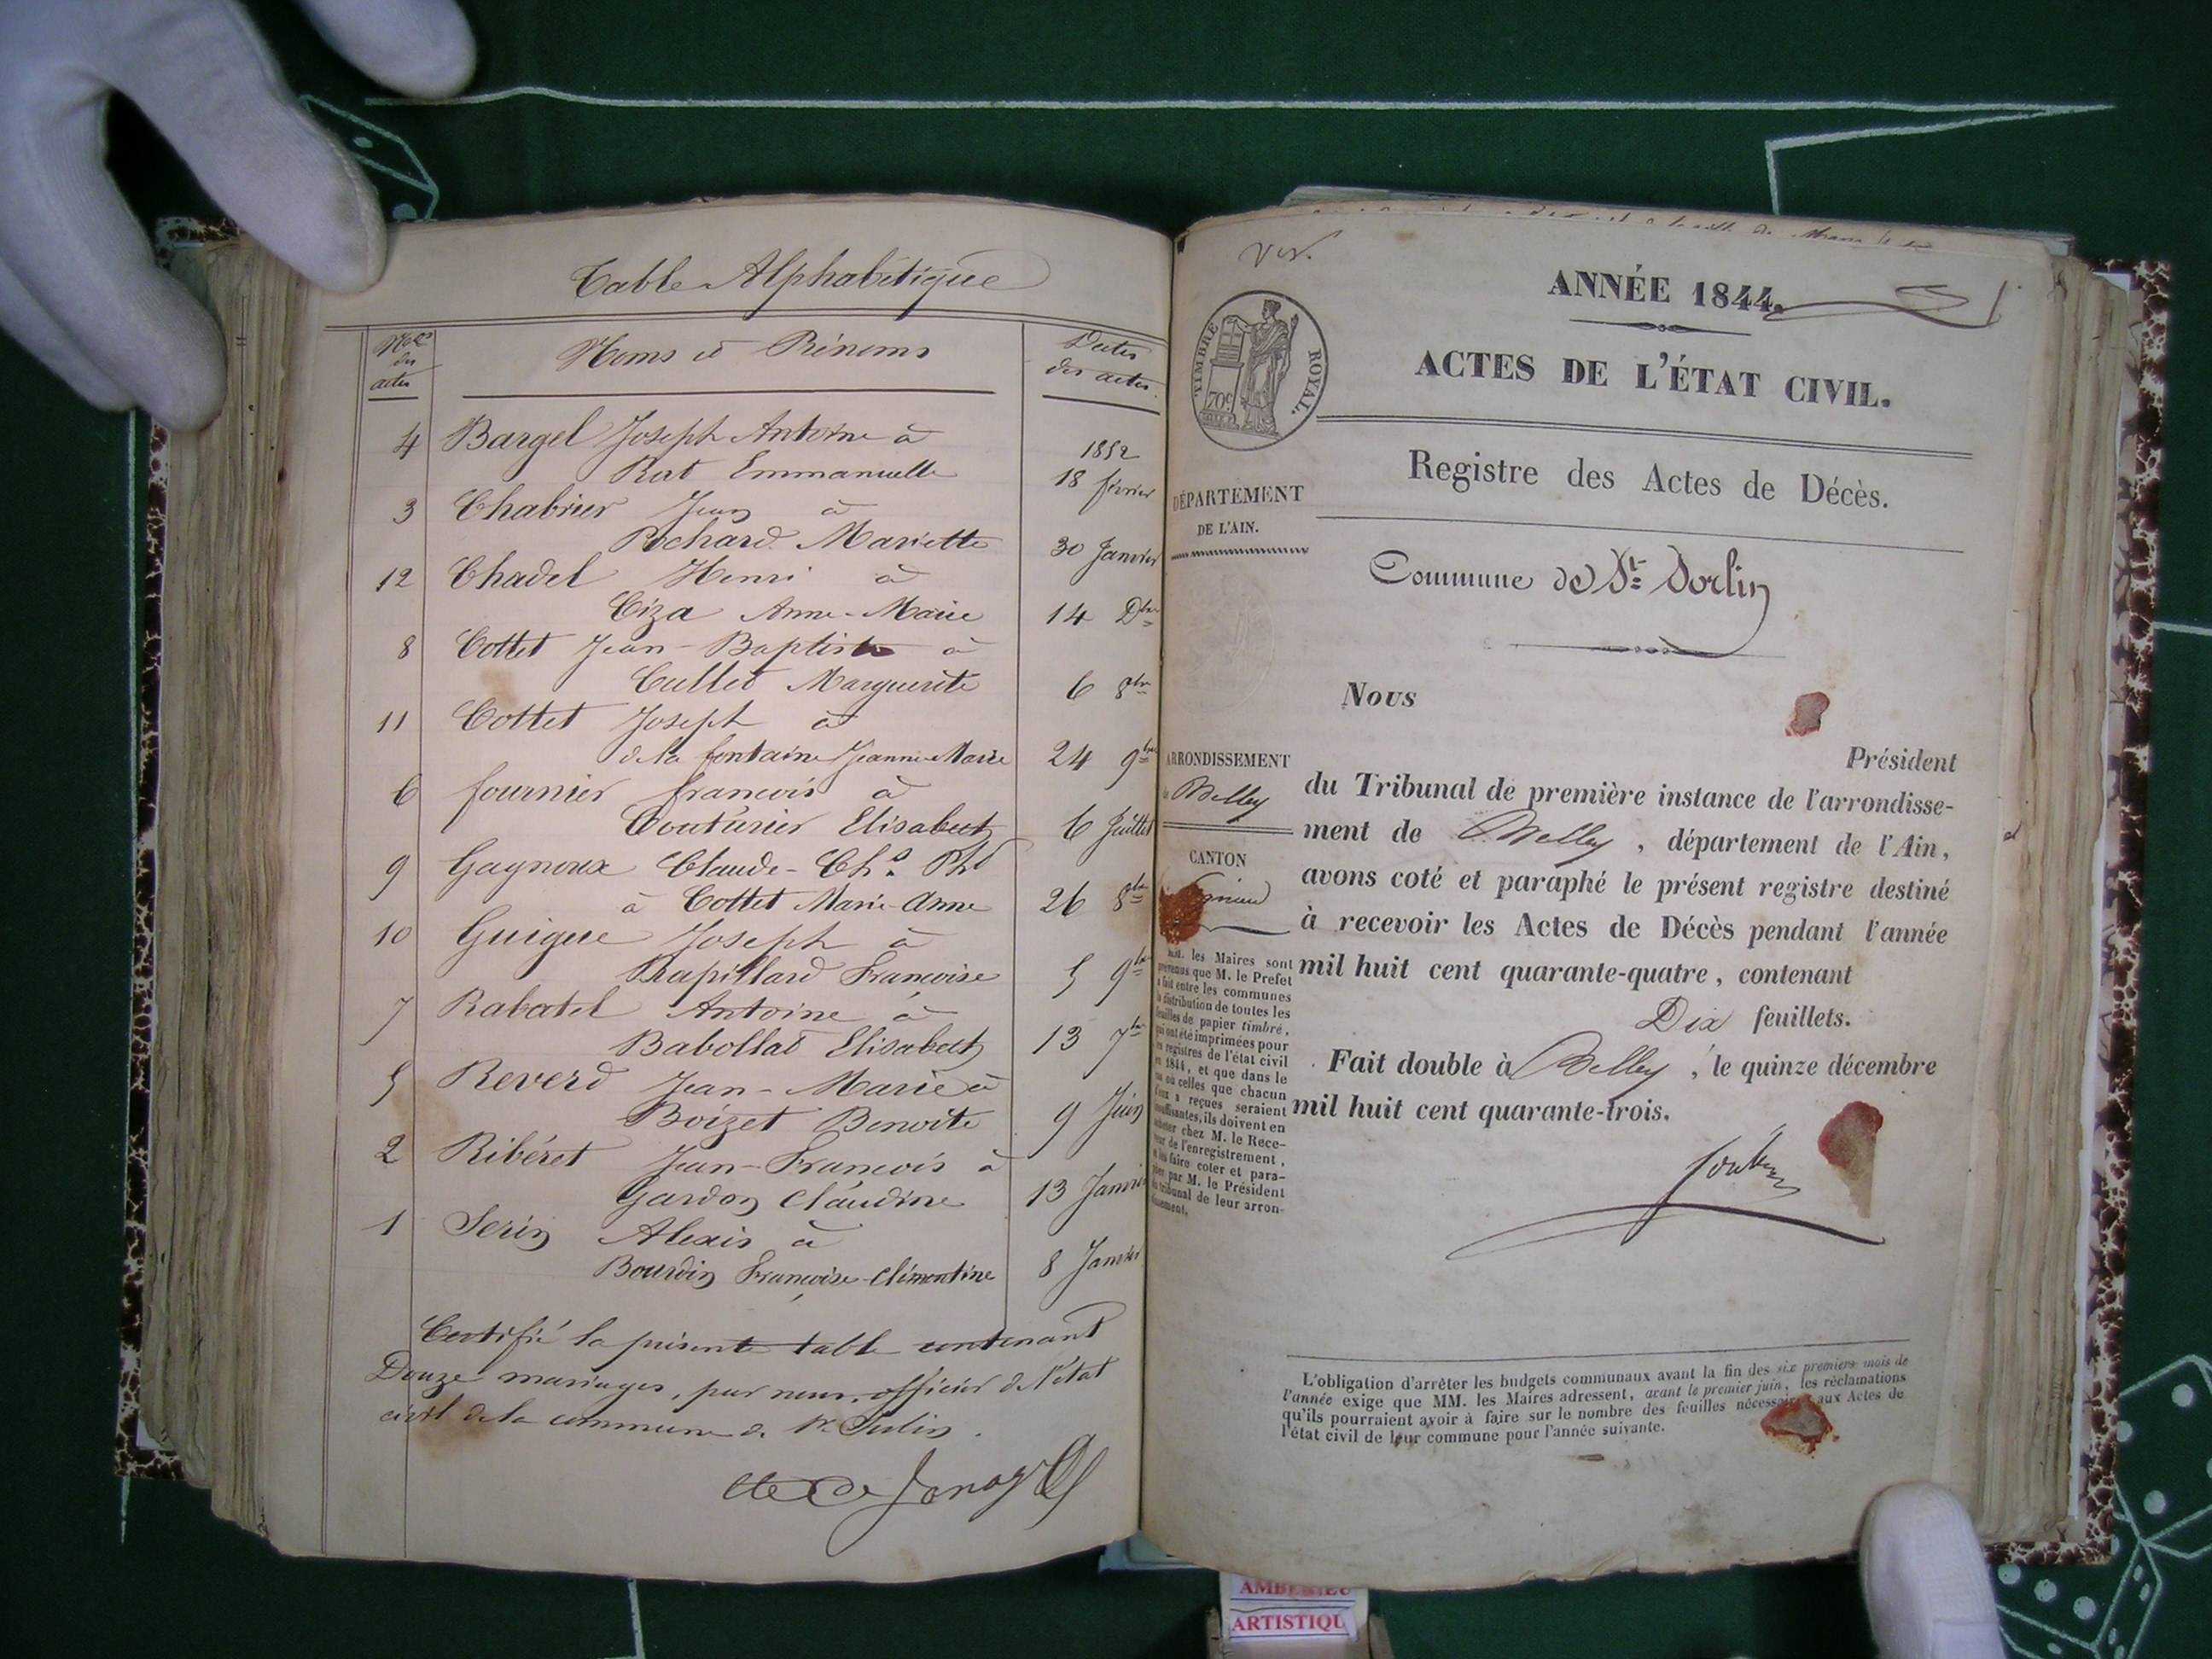 Table Alphabétique
Nos des actes
Noms et Prénoms
Dates des actes
4 Bargel Joseph Antoine à 1852
Rat Emmanuelle 18 février
3 Chabrier Jean à
Pochard Mariette 30 Janvier
12 Chadel Henri à
Ciza Anne-Marie 14 Dbre
8 Cottet Jean-Baptiste à
Cullet Marguerite 6 8bre
11 Cottet Joseph à
de la fontaine Jeanne-Marie 24 9bre
6 fournier francois à
Couturier Elisabeth 6 Juillet
9 Gagneux Claude-Chs Phl
à Cottet Marie-Anne 26 8bre
10 Guigue Joseph à
Rapillard Françoise 5 9bre
7 Rabatel Antoine à
Babollat Elisabeth 13 7bre
5 Reverd Jean-Marie à
Boizet Benoite 9 Juin
2 Ribéret Jean-François à
Gardon Claudine 13 Janvier
1 Serin Alexis à
Bourdin Françoise-Clémentine 8 Janvier
Certifié la présente table contenant
Douze mariages, par nous, officier de l'état
civil de la commune de St Sorlin.
ANNÉE 1844.
ACTES DE L'ÉTAT CIVIL.
TIMBRE ROYAL.
70c
Registre des Actes de Décès.
DÉPARTEMENT
DE L'AIN.
Commune de St Sorlin
Nous
Président
ARRONDISSEMENT
Belley
CANTON
du Tribunal de première instance de l'arrondisse-
ment de Belley, département de l'Ain,
avons coté et paraphé le présent registre destiné
à recevoir les Actes de Décès pendant l'année
mil huit cent quarante-quatre, contenant
Dix feuillets.
Fait double à Belley, le quinze décembre
mil huit cent quarante-trois.
les Maires sont
prévenus que M. le Prefet
a fait entre les communes
la distribution de toutes les
feuilles de papier timbré,
qui ont été imprimées pour
les registres de l'état civil
en 1844, et que dans le
cas où celles que chacun
d'eux a reçues seraient
insuffisantes, ils doivent en
acheter chez M. le Rece-
veur de l'enregistrement,
et les faire coter et para-
pher par M. le Président
du tribunal de leur arron-
dissement.
L'obligation d'arrêter les budgets communaux avant la fin des six premiers mois de
l'année exige que MM. les Maires adressent, avant le premier juin, les réclamations
qu'ils pourraient avoir à faire sur le nombre des feuilles nécessaires aux Actes de
l'état civil de leur commune pour l'année suivante.
AMBERIEU
ARTISTIQU